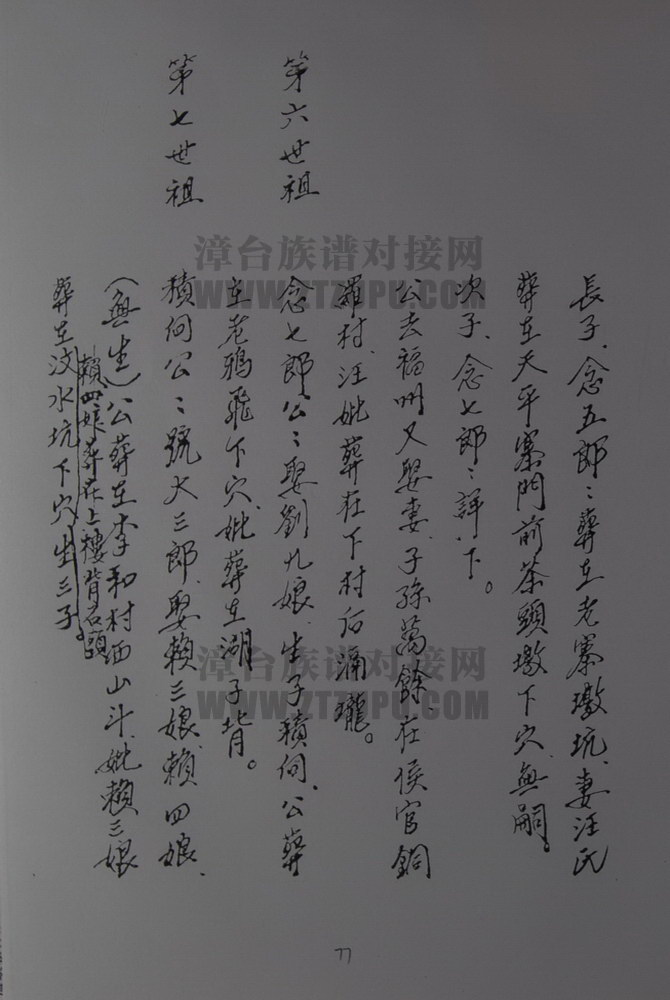 長子、念五郎〻葬在老寨墩坑、妻汪氏
葬在天平寨門前茶頭墩下穴、無嗣。
次子、念七郎〻詳下。
公去福州又娶妻、子孫萬餘、在侯官銅
羅村、汪妣葬在下村石涌壠。
第六世祖
念七郎公〻娶劉九娘、生子積伺、公葬
在老鴉飛下穴、妣葬在湖子背。
第七世祖
積伺公〻號大三郎、娶賴三娘、賴四娘、
(無生)公葬在李和村西山斗、妣賴三娘
賴四娘葬在上樓背石頭
葬在汶水坑下穴、生三子。
漳台族谱对接网
WWW.ZTZUPU.COM
漳台族谱对接网
WWW.ZTZUPU.COM
77